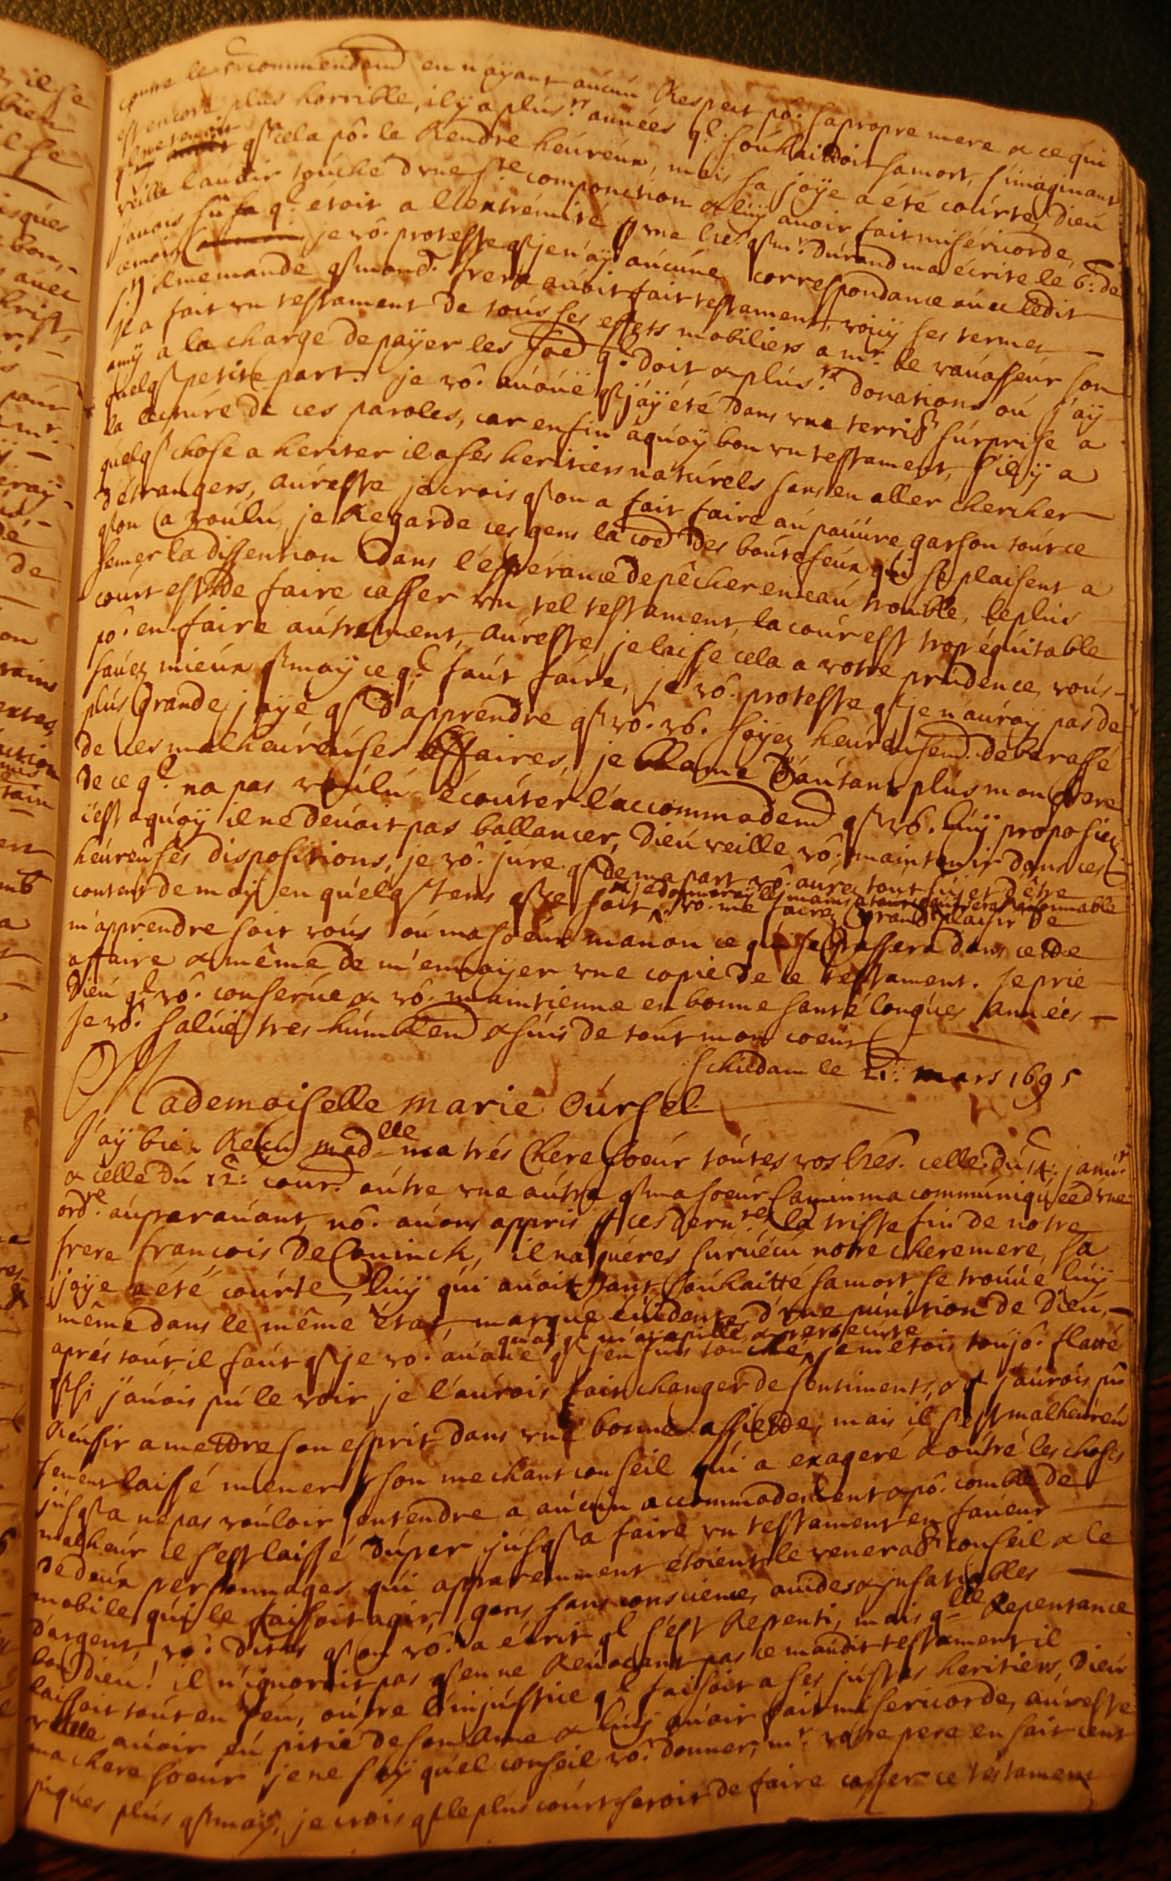 contre le commendemd en n'ayant aucun Respect pô. sa propre mere & ce qui
est encore plus horrible, il y a plusrs. années ql. souhaittoit sa mort, s'imaginant
qe cela pô. le Rendre heureux, mais sa joÿe a été courte, Dieu
veille l'avoir touché d'une ste componction & luÿ avoir fait misericorde,
j'avois sû ql. étoit a l'extrémité p une lre. qe mr. Durand m'a écrite le 6e. de
ce mois, je vô. proteste qe je n'aÿ aucune correspondance avec ledit
Sr. il me mande qe mond. frere avoit fait testament, voicÿ ses termes,
Il a fait un testament de tous ses effets mobiliers a mr. le vavasseur son
amÿ a la charge de paÿer les ql. doit & plusrs. donations où j'aÿ
quelqe petite part. je vô. avoüe qe j'aÿ été dans une terrib surprise a
la lecture de ces paroles, car enfin a quoÿ bon un testament, s'il ÿ a
quelqe chose a heriter il a ses heritiers naturels sans en aller chercher
d'étrangers, au reste je crois qe on a fait faire au pauvre garson tout ce
qe on a voulu, je Regarde ces gens la coe des boutefeux qui se plaisent a
semer la dissention dans l'espérance de pêcher en eau trouble, le plus
court est de faire casser un tel testament, la cour est trop équitable
pô. en faire autrement, au reste je laisse cela a votre prudence, vous
savez mieux qe moÿ ce ql. faut faire, je vô. proteste qe je n'auraÿ pas de
plus grande joÿe qe d'apprendre qe vô. soÿez heureusemd. debarassé
de ces malheureuses affaires, je blame d'autant plus mon frere
de ce ql. n'a pas voulu écouter l'accommodemd qe luÿ proposiez
c'est a quoÿ il ne devoit pas ballancer, Dieu veille vô. maintenir dans ces
heureuses dispositions, je vô. jure qe de ma part vô. aurez tout sujet d'être
content de moÿ en quelqe tems qe ce soit, & je donneray les mains a tout raisonnable
vô. me faire grand plaisir de
m'apprendre soit vous ou ma soeur manon ce qui se passera dans cette
affaire & même de m'envoÿer une copie de ce testament. Je prie
Dieu ql. vô. conserve & vô. maintienne en bonne santé longues années
Je vô. salüe tres humblemd & suis de tout mon coeur
Schiedam le 21e. mars 1695
Mademoiselle Marie Oursel
J'aÿ bien Reçu madlle ma trés chere soeur toutes vos lres. celle du 14e. janvr.
& celle du 12e. cour. outre une autre qe ma soeur Camin m'a communiquée d'une
ordre. auparavant, nô. avons appris p ces dernres la triste fin de notre
frere françois De Coninck, il n'a guéres survécu notre chere mere, sa
joÿe a été courte, luÿ qui avoit tant souhaitté sa mort se trouve luÿ
même dans le même état, marque evidente d'une punition de Dieu,
aprés tout il faut qe je vô. avoüe qe j'en suis touché quoÿ ql. m'ait pillé & persecuté, je m'étois toujô. flatté
qe si j'avois pu le voir je l'aurois fait changer de sentiments, & qe j'aurois pu
Reussir a mettre son esprit dans une bonne assiette, mais il s'est malheureu
sement laissé mener p son mechant conseil qui a exageré & outré les choses
jusqe a ne pas vouloir entendre a aucun accommodement & pô. comble de
malheur il s'est laissé duper jusqe a faire un testament en faveur
de deux personnages qui apparemment étoient le venerab conseil & le
mobile qui le faisoit agir, gens sans conscience, avides & insatiables
d'argent, vô. dites qe on vô. a écrit ql. s'est Repenti, mais qlle Repentance
bon Dieu! il n'ignoroit pas qe en ne Revocant pas ce maudit testament il
laissoit tout en feu, outre l'injustice ql. faisoit a ses justes heritiers, Dieu
veille avoir eu pitié de son ame & luÿ avoir fait misericorde, au reste
ma chere soeur je ne saÿ quel conseil vô. donner, mr. votre pere en sait cent
piques plus qe moÿ, je crois qe le plus court seroit de faire casser ce testament